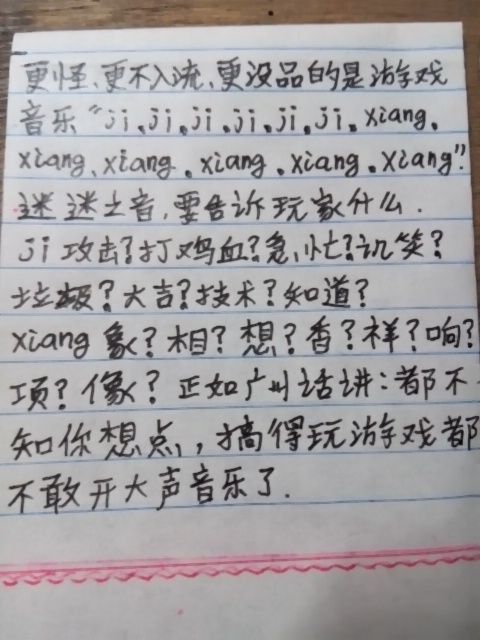 更怪、更不入流、更没品的是游戏
音乐“ji、ji、ji、ji、ji、ji、xiang、
xiang、xiang、xiang、xiang、xiang”?
迷迷之音,要告诉玩家什么.
ji 攻击?打鸡血?急,忙?讥笑?
垃圾?大吉?技术?知道?
xiang 象?相?想?香?祥?响?
项?像?正如广州话讲:都不
知你想点,搞得玩游戏都
不敢开大声音乐了.